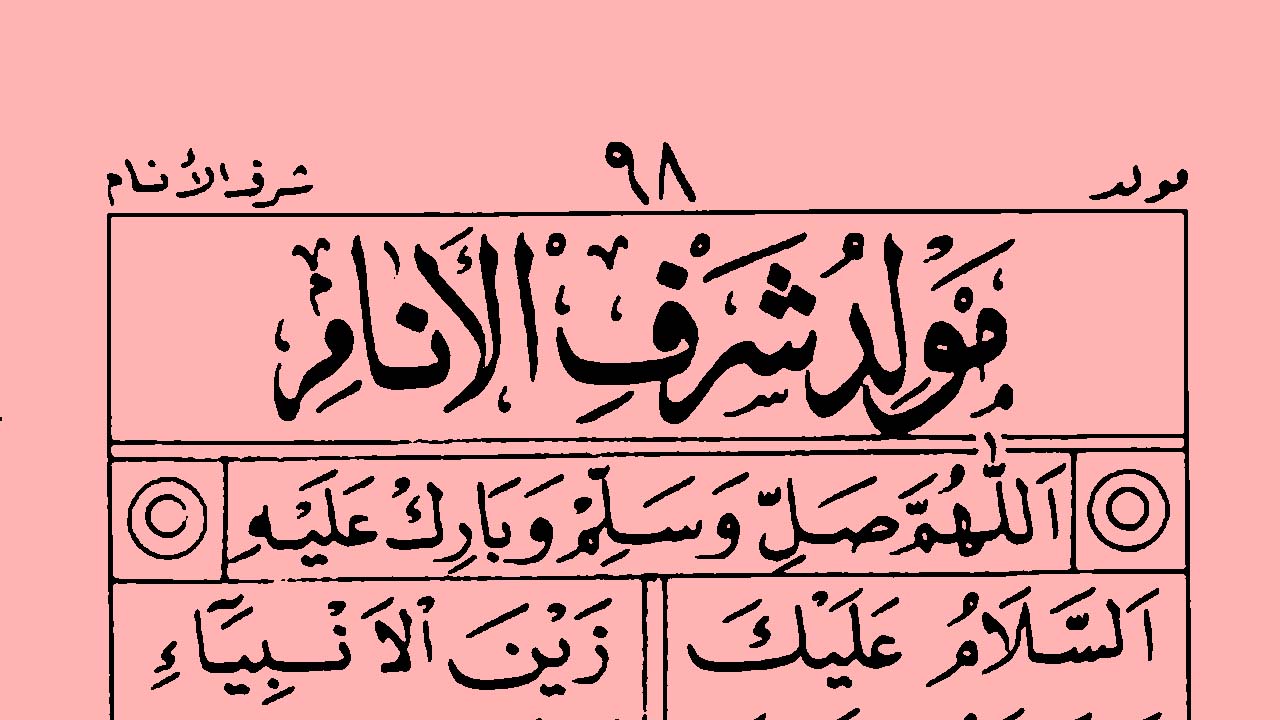 مولد ٩٨ شرف الأنام
مَوْلِدُ شَرَفِ الْأَنَامِ
اَللّٰهُمَّ صَلِّ وَسَلِّمْ وَبَارِكْ عَلَيْهِ
اَلسَّلَامُ عَلَيْكَ زَيْنَ الْاَنْبِيَآءِ